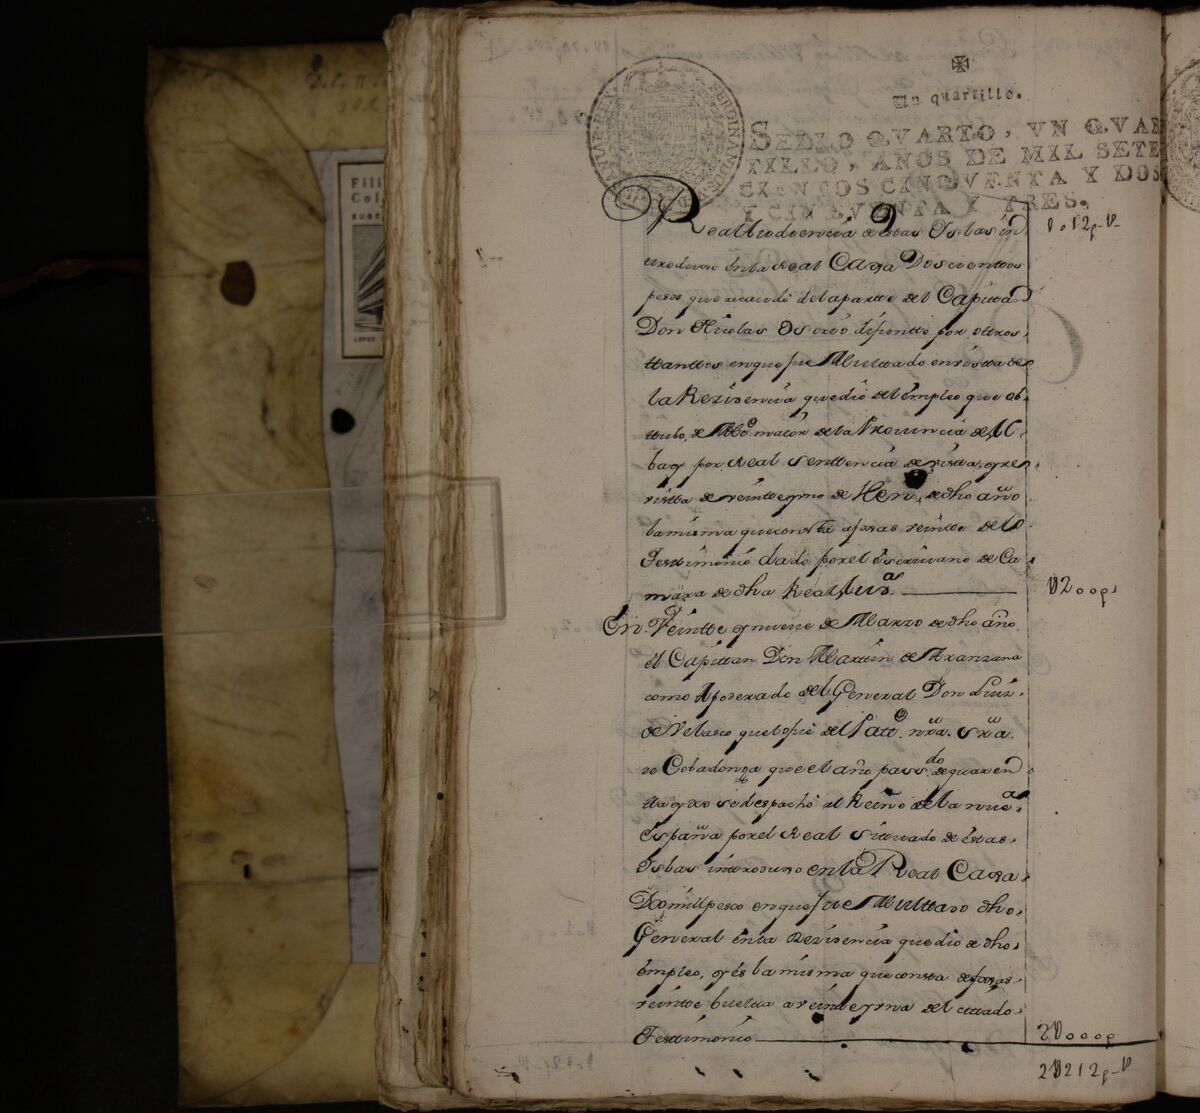 Un quartillo.
SELLO QVARTO, VN QVAR
TILLO, AÑOS DE MIL SETE
CIENTOS CINQVENTA Y DOS
Y CINQVENTA Y TRES.
Real Audiencia de estas Yslas in
troduxo en la Real Caxa Doscientos
pesos que recaudó de la partte del Capittan
Don Nicolas Osorio difuntto por ottros
ttanttos en que fue Multtado en vistta de
la Rezidencia que dió del émpleo que ob
ttubo, de Alc.e maior de la Prouincia de
bay por Real senttencia de vistta, y re
vistta de veintte y uno de Hen.o de dho año
la misma que constta afoxas veintte del
Testtimonio dado por el éscriuano de Ca
mara de dha Real Aud.a
U200p.s
En Veintte y nueue de Marzo de dho año
él Capittan Don Marttin de Aranzana
como Apoderado del General Don Luis
de Velasco que lo fué del Patt.e nra. Sra.
de Cobadonga que el año pass.do de quaren
tta y dos se despachó al Reino de la nue.a
España por el Real Sittuado de éstas
Yslas inttroduxo en la Real Caxa
Dos mill pesos en que fue Multtado dho
General én la Rezidencia que dió de dho
émpleo, y és la misma que consta de foxas
veintte buelta a veinte y una del cittado
Testtimonio
2U000p
2U212p